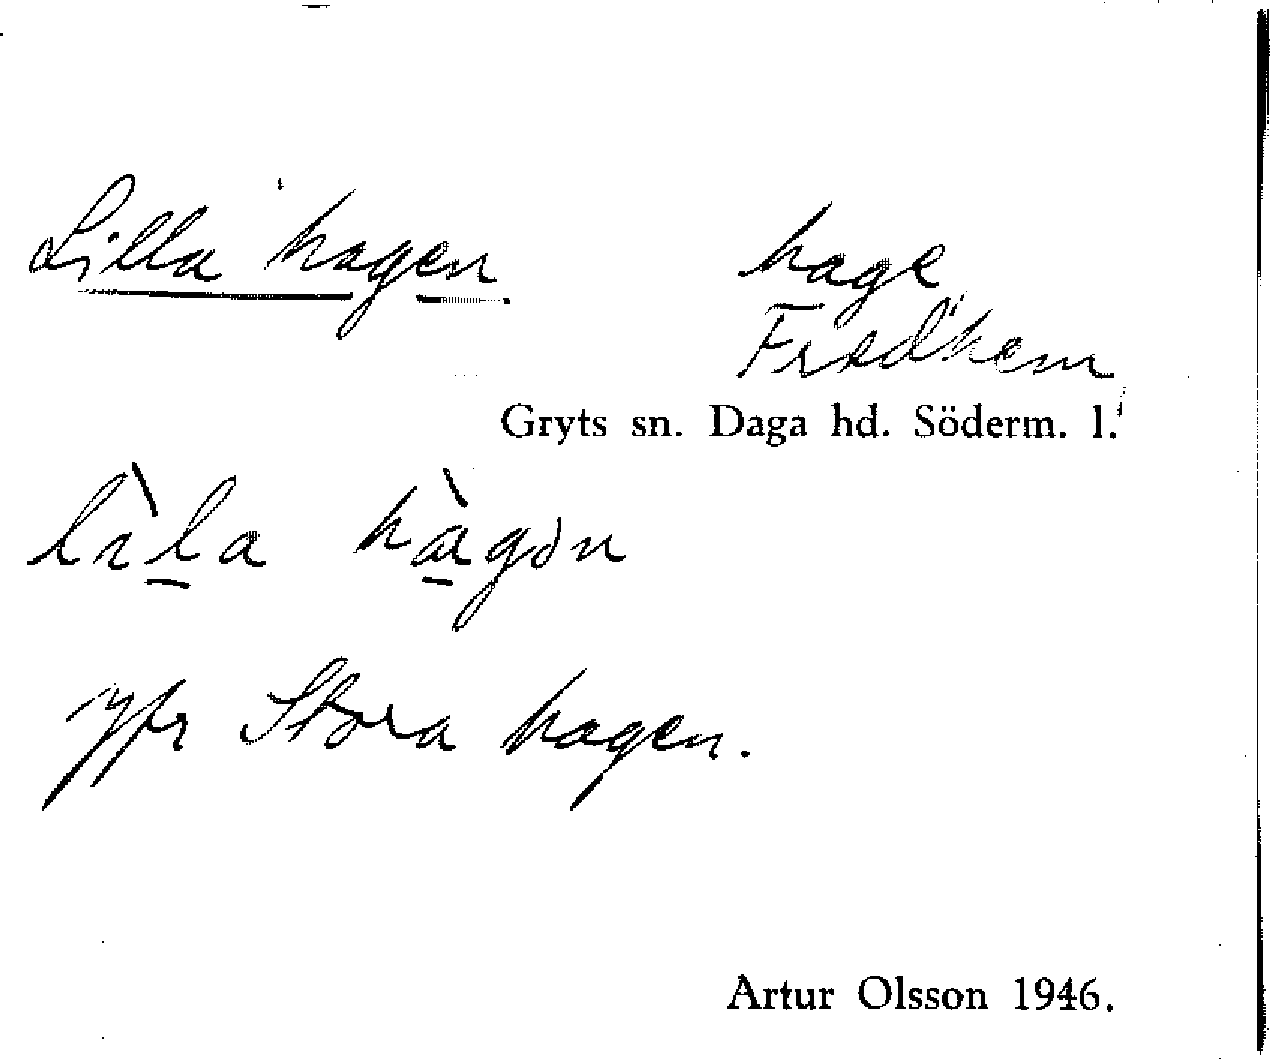 Lilla hagen
hage
Fridhem
Gryts sn. Daga hd. Söderm. l.
lìla hàgən
jfr Stora hagen.
Artur Olsson 1946.